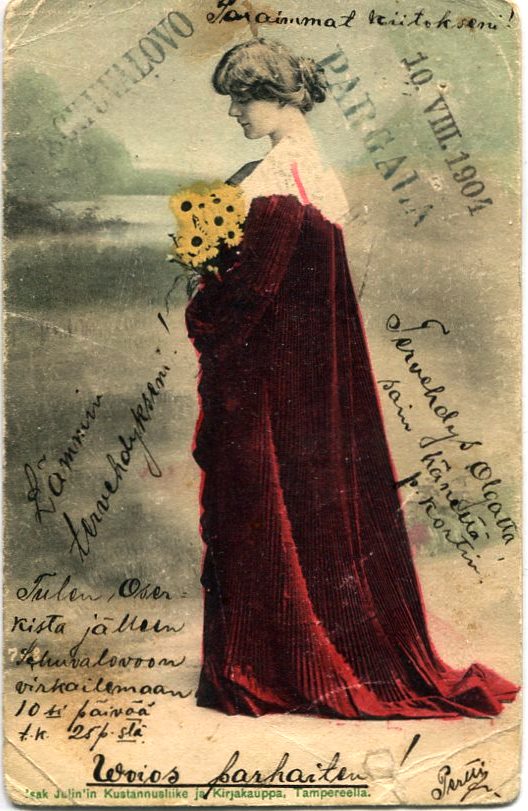 Paraimmat kiitokseni!
SCHUVALOVO
PARGALA
10. VIII. 1904
Tervehdys Olgalta,
sain häneltä
p. kortin.
Lämmin
tervehdykseni!
Tulen, Oser-
kista jälleen
Schuvalovoon
virkailemaan
10 päivää
t.k. 25 p. stä
Woios parhaiten!
Isak Julin'in Kustannusliike ja Kirjakauppa, Tampereella.